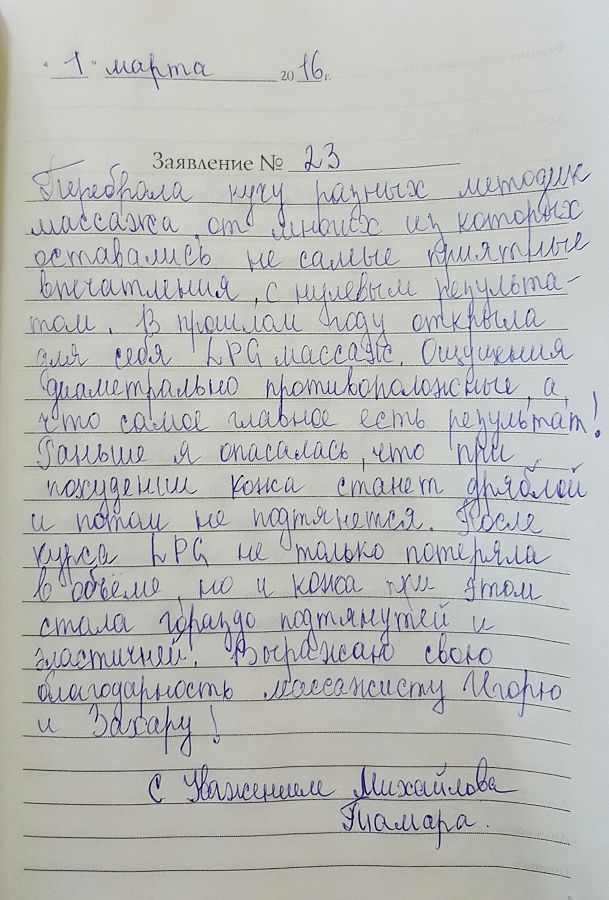 « 1 » марта 2016 г.
Заявление № 23
Перебрала кучу разных методик
массажа, от многих из которых
оставались не самые приятные
впечатления, с нулевым результа-
том. В прошлом году открыла
для себя LPG массаж. Ощущения
диаметрально противоположные, а,
что самое главное есть результат!
Раньше я опасалась, что при
похудении кожа станет дряблой
и потом не подтянется. После
курса LPG не только потеряла
в объёме, но и кожа при этом
стала гораздо подтянутей и
эластичней. Выражаю свою
благодарность массажисту Игорю
и Захару!
С Уважением Михайлова
Тамара.